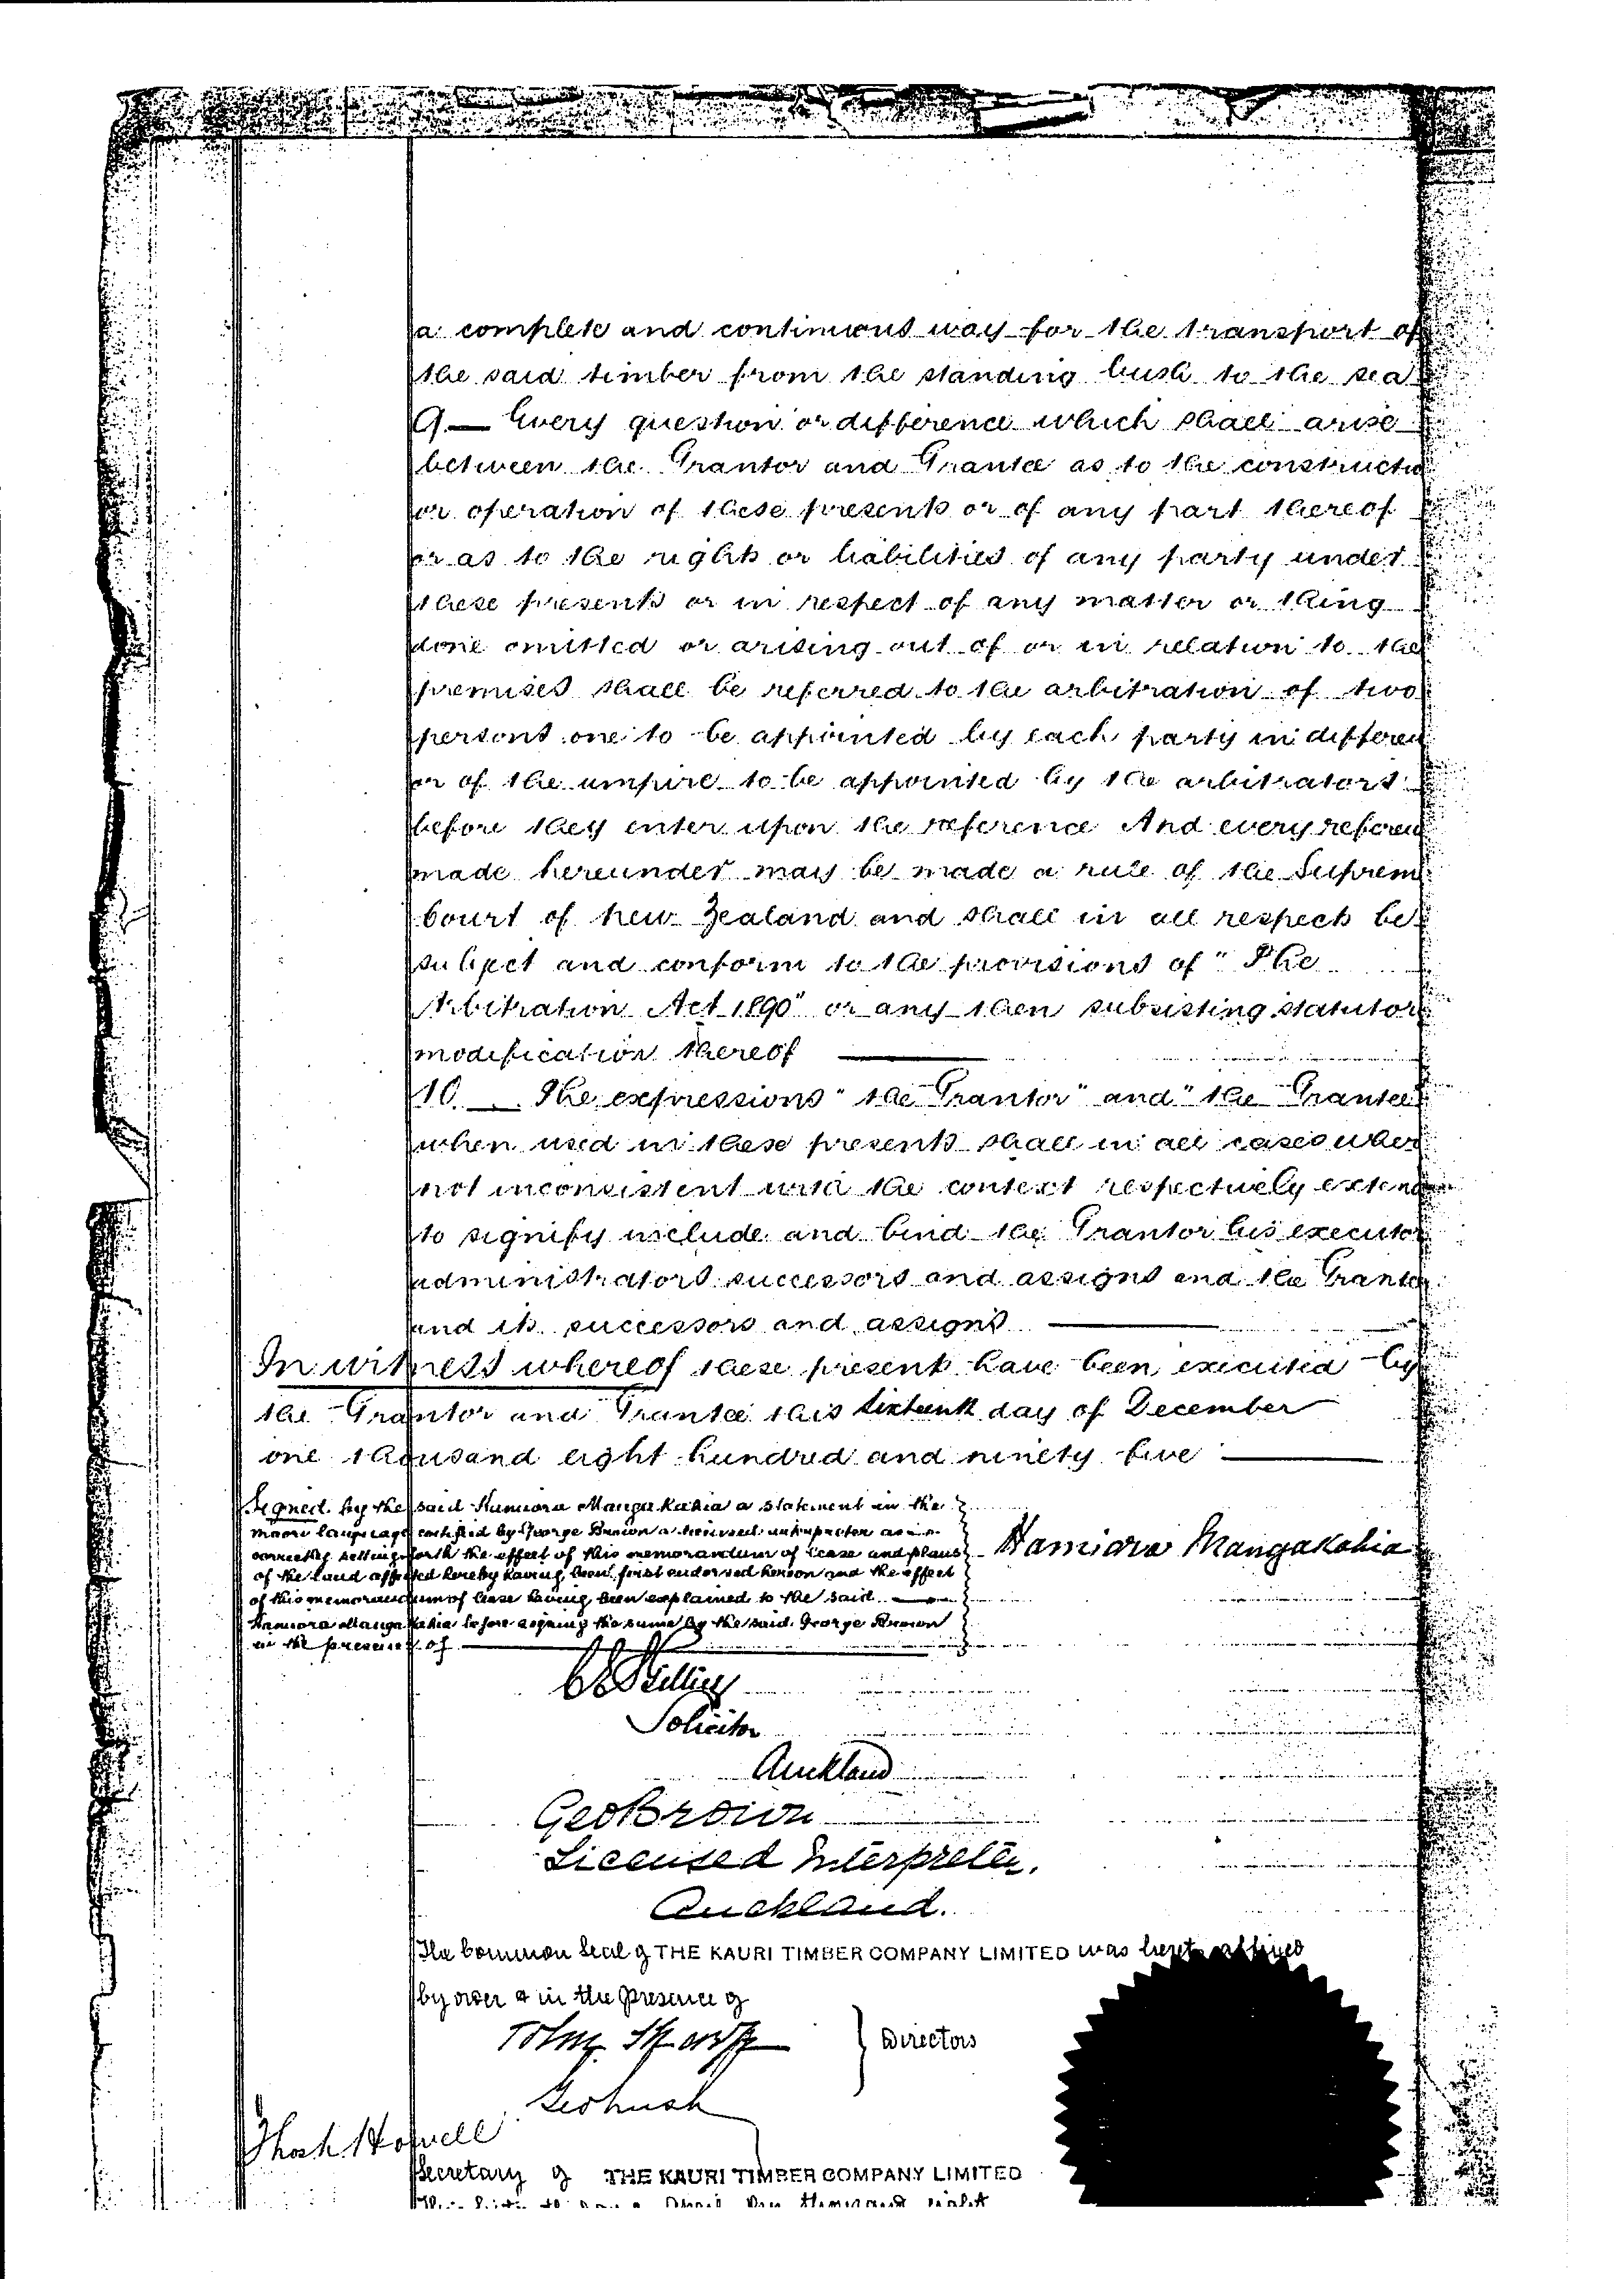 a complete and continuous way for the transport of
the said timber from the standing bush to the sea
9. — Every question or difference which shall arise
between the Grantor and Grantee as to the constructio
or operation of these presents or of any part thereof
or as to the rights or liabilities of any party under
these presents or in respect of any matter or thing
done omitted or arising out of or in relation to the
premises shall be referred to the arbitration of two
persons one to be appointed by each party in differen
or of the umpire to be appointed by the arbitrators
before they enter upon the reference And every referen
made hereunder may be made a rule of the Suprem
Court of New Zealand and shall in all respects be
subject and conform to the provisions of "The
Arbitration Act 1890" or any then subsisting statutory
modification thereof
10. The expressions "the Grantor" and "the Grantee
when used in these presents shall in all cases when
not inconsistent with the context respectively extend
to signify include and bind the Grantor his executor
administrators successors and assigns and the Grantee
and its successors and assigns
In witness whereof these presents have been executed by
the Grantor and Grantee this sixteenth day of December
one thousand eight hundred and ninety five
Signed by the said Hamiora Mangakahia a statement in the
maori language certified by George Brown a licensed interpreter as
correctly setting forth the effect of this memorandum of lease and plans
of the land affected hereby having been first endorsed hereon and the effect
of this memorandum of lease having been explained to the said
Hamiora Mangakahia before signing the same by the said George Brown
in the presence of
Hamiora Mangakahia
Solicitor
Auckland
Geo Brown
Licensed Interpreter.
Auckland.
The Common Seal of THE KAURI TIMBER COMPANY LIMITED was hereto affixed
by order & in the presence of
Directors
Secretary of THE KAURI TIMBER COMPANY LIMITED